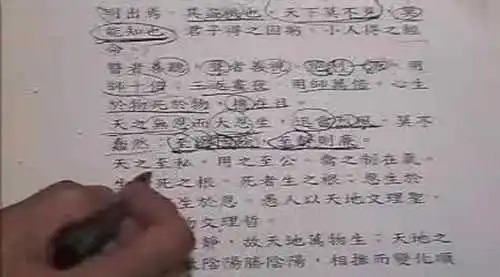 明出焉。其盜機也,天下莫不見,莫
能知也。君子得之固躬,小人得之輕
命。
瞽者善聽,聾者善視。絕利一源,用
師十倍。三返晝夜,用師萬倍。心生
於物死於物,機在目。
天之無恩而大恩生,迅雷烈風,莫不
蠢然。至樂性餘,至靜則廉。
天之至私,用之至公。禽之制在氣。
生 死之根,死者生之根。恩生於
生於恩。愚人以天地文理聖,
文理哲。
靜,故天地萬物生;天地之
陰陽勝陰陽,相推而變化順